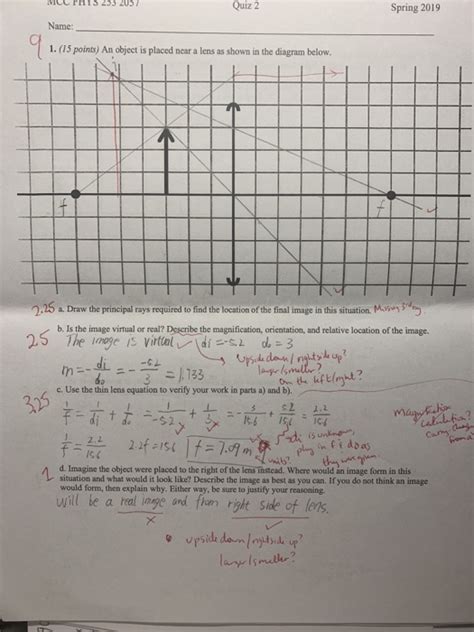 MCC PHYS 253 2057 Quiz 2 Spring 2019
Name:
9
1. (15 points) An object is placed near a lens as shown in the diagram below.
f f
2.25 a. Draw the principal rays required to find the location of the final image in this situation. Missing
b. Is the image virtual or real? Describe the magnification, orientation, and relative location of the image.
2.5 The image is virtual di = -5.2 do = 3
upside down / rightside up?
larger/smaller?
on the left/right?
m = - di/do = - -5.2/3 = 1.733
c. Use the thin lens equation to verify your work in parts a) and b).
3.25
1/f = 1/di + 1/do = 1/-5.2 + 1/3 = - 3/15.6 + 5.2/15.6 = 2.2/15.6
Magnification
calculation?
1/f = 2.2/15.6 2.2f = 15.6 f = 7.09 m
di is unknown,
plug in f & do as
they were given.
units?
d. Imagine the object were placed to the right of the lens instead. Where would an image form in this
situation and what would it look like? Describe the image as best as you can. If you do not think an image
would form, then explain why. Either way, be sure to justify your reasoning.
will be a real image and from right side of lens.
upside down/rightside up?
larger/smaller?